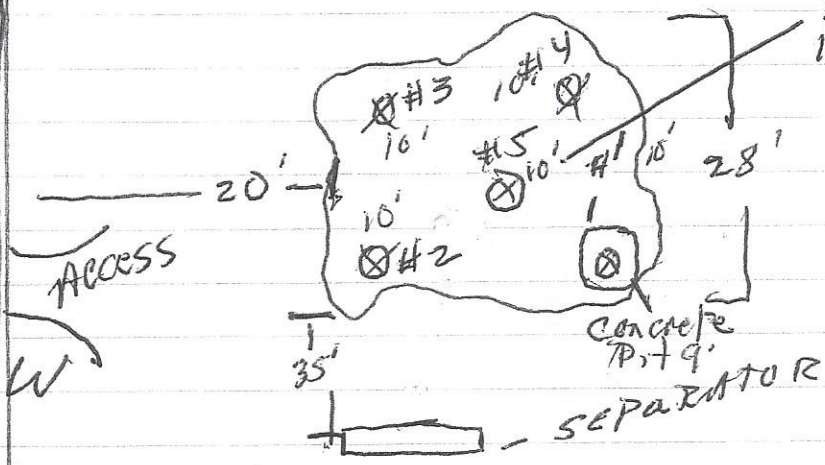 #4
#3 10'
10'
#5 10' #1 10' 28'
20'
10'
#2
ACCESS
Concrete
Pit 9'
35'
W
SEPARATOR